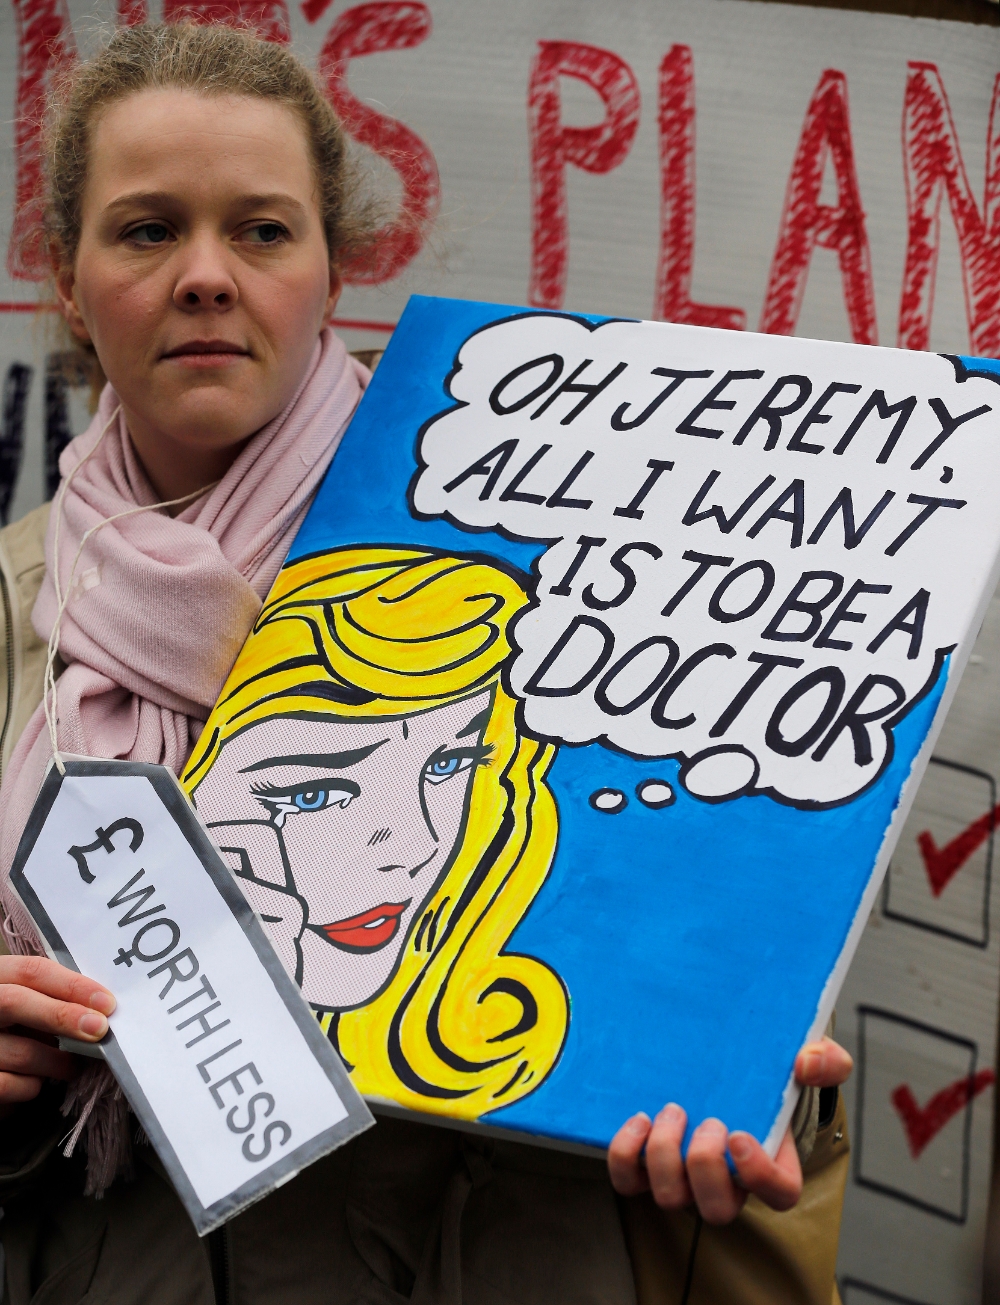 'S PLAN
OH JEREMY,
ALL I WANT
IS TO BE A
DOCTOR
£ WORTHLESS